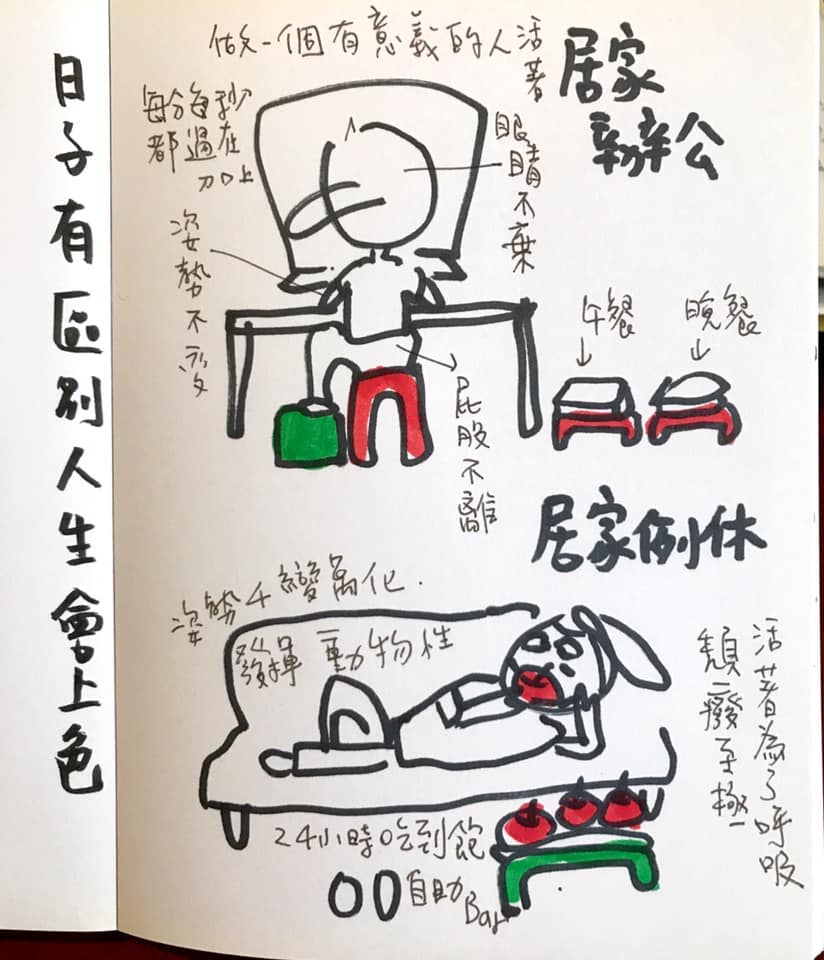 日子有區別人生會上色
做一個有意義的人活著
居家
辦公
每分每秒
都過在
刀口上
眼睛不棄
姿勢不變
屁股不離
午餐
晚餐
居家例休
姿勢千變萬化.
發揮動物性
活著為了呼吸
頹廢至極
24小時吃到飽
OO自助Bar